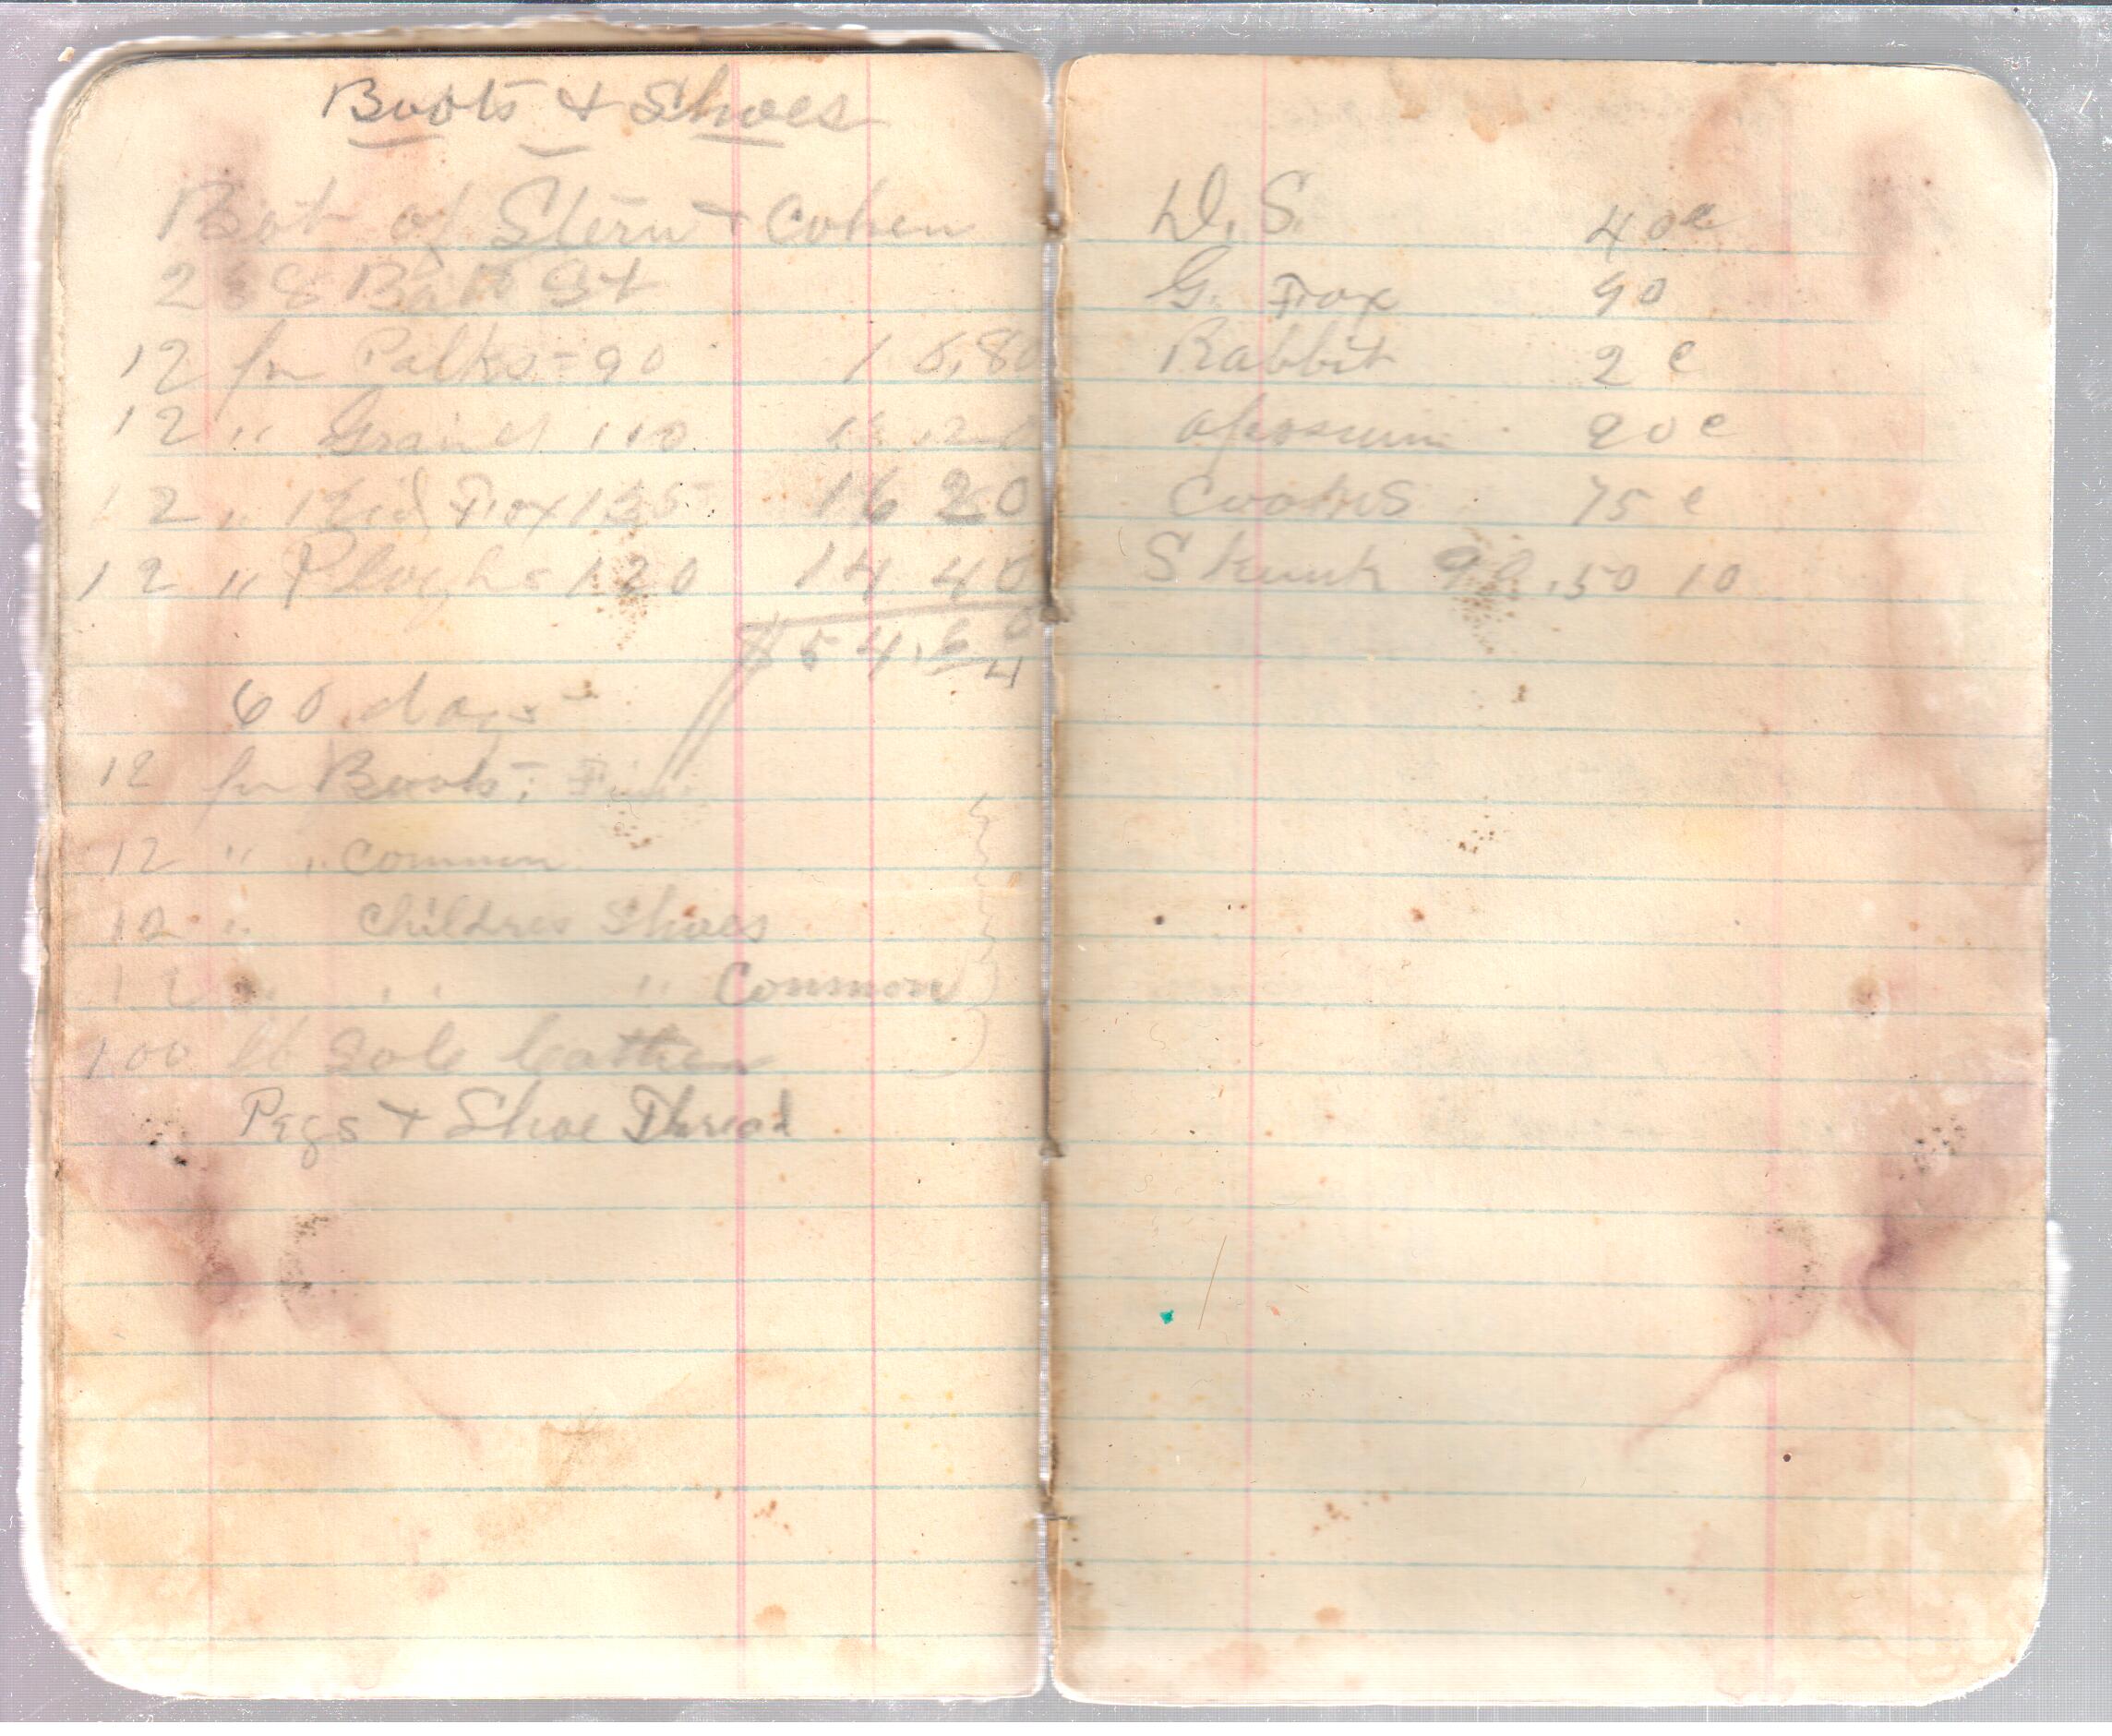 Boots & Shoes
Bot of Stern & Cohen
268 Balto St
12 pr Polks - 90 10,80
12 " Grain 110 13.20
12 " Kid Fox 135 16 20
12 " Ploughs 120 14 40
$54.60
60 days -
12 pr Boots; Fine
12 " " Common
12 " Childres Shoes
12 " " " Common
100 lb Sole leather
Pegs & Shoe Thread
D. S. 40c
G. Fox 90
Rabbit 2c
opossum 20c
Coones 75c
Skunk .50 10